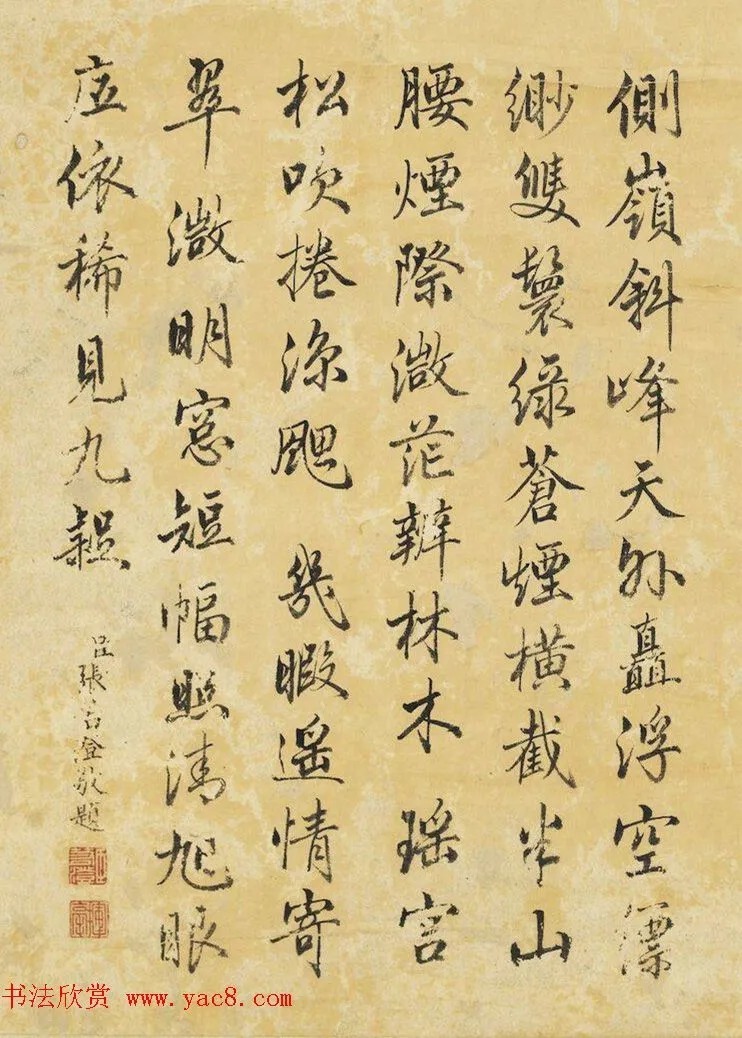 側嶺斜峰天外矗浮空縹
緲雙鬟綠蒼煙橫截半山
腰煙際微茫辨林木瑤宮
松吹捲涼颸幾暇遙情寄
翠微明窓短幅照清旭眼
底依稀見九疑
臣張若澄敬題
书法欣赏 www.yac8.com